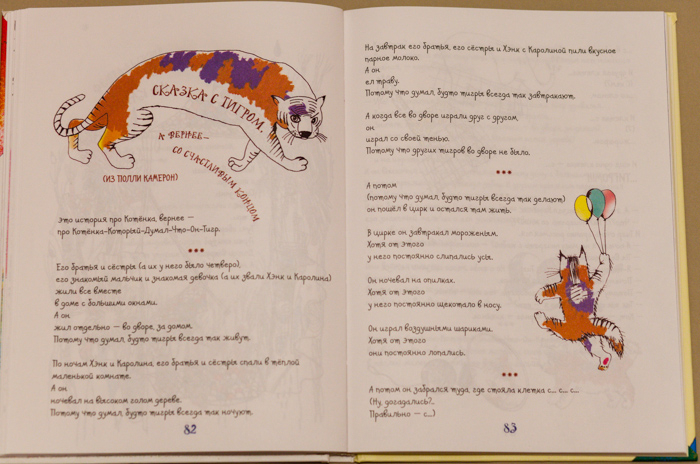 СКАЗКА С ТИГРОМ,
А ВЕРНЕЕ...
СО СЧАСТЛИВЫМ КОНЦОМ
(ИЗ ПОЛЛИ КАМЕРОН)
Это история про Котёнка, вернее —
про Котёнка-Который-Думал-Что-Он-Тигр.
***
Его братья и сёстры (а их у него было четверо),
его знакомый мальчик и знакомая девочка (а их звали Хэнк и Каролина)
жили все вместе
в доме с большими окнами.
А он
жил отдельно — во дворе, за домом.
Потому что думал, будто тигры всегда так живут.
По ночам Хэнк и Каролина, его братья и сёстры спали в тёплой
маленькой комнате.
А он
ночевал на высоком голом дереве.
Потому что думал, будто тигры всегда так ночуют.
82
На завтрак его братья, его сёстры и Хэнк с Каролиной пили вкусное
парное молоко.
А он
ел траву.
Потому что думал, будто тигры всегда так завтракают.
А когда все во дворе играли друг с другом,
он
играл со своей тенью.
Потому что других тигров во дворе не было.
***
А потом
(потому что думал, будто тигры всегда так делают)
он пошёл в цирк и остался там жить.
В цирке он завтракал мороженым.
Хотя от этого
у него постоянно слипались усы.
Он ночевал на опилках.
Хотя от этого
у него постоянно щекотало в носу.
Он играл воздушными шариками.
Хотя от этого
они постоянно лопались.
***
А потом он забрался туда, где стояла клетка с... с... с...
(Ну, догадались?..
Правильно — с...)
83